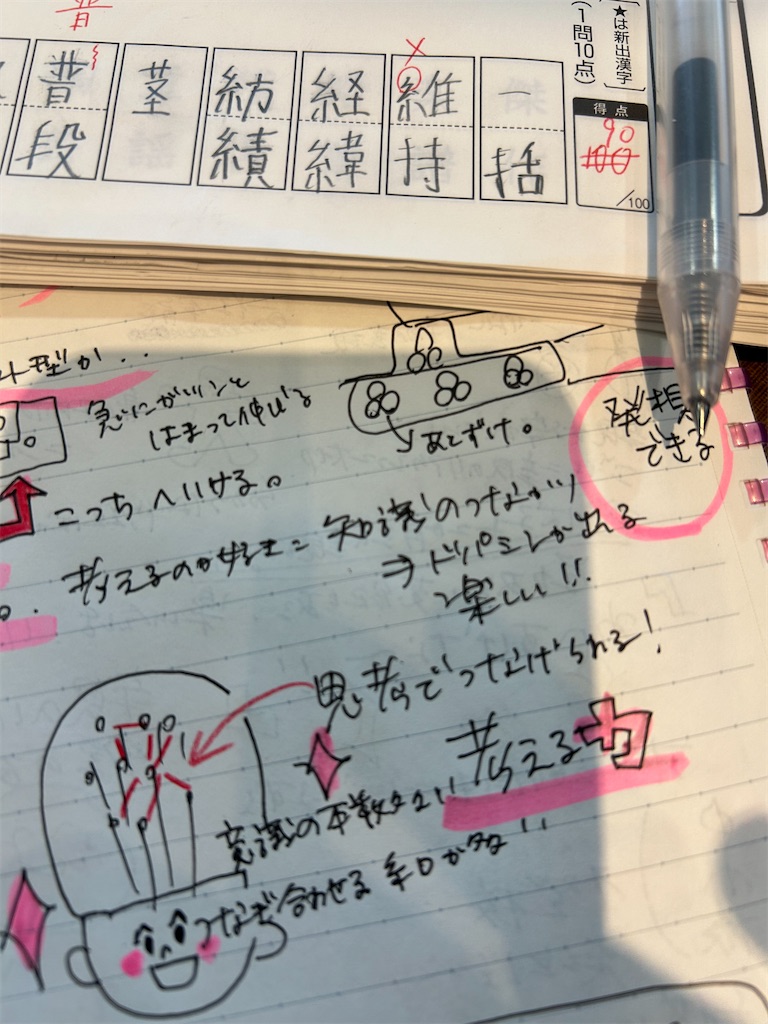 昔
★は新出漢字
(1問10点)
得点
90
100
/100
一括
維持
経緯
紡績
茎
普段
×
ト型か...
急にガツンと
はまって伸びる
あとずけ。
発想
できる
こっちへいける。
考えるのが好き=知識のつながり
⇒ドパミンが出る
楽しい!!
思考でつなげられる!
考える力
意識の本数多い!!
つなぎ合わせる糸口が多い!!